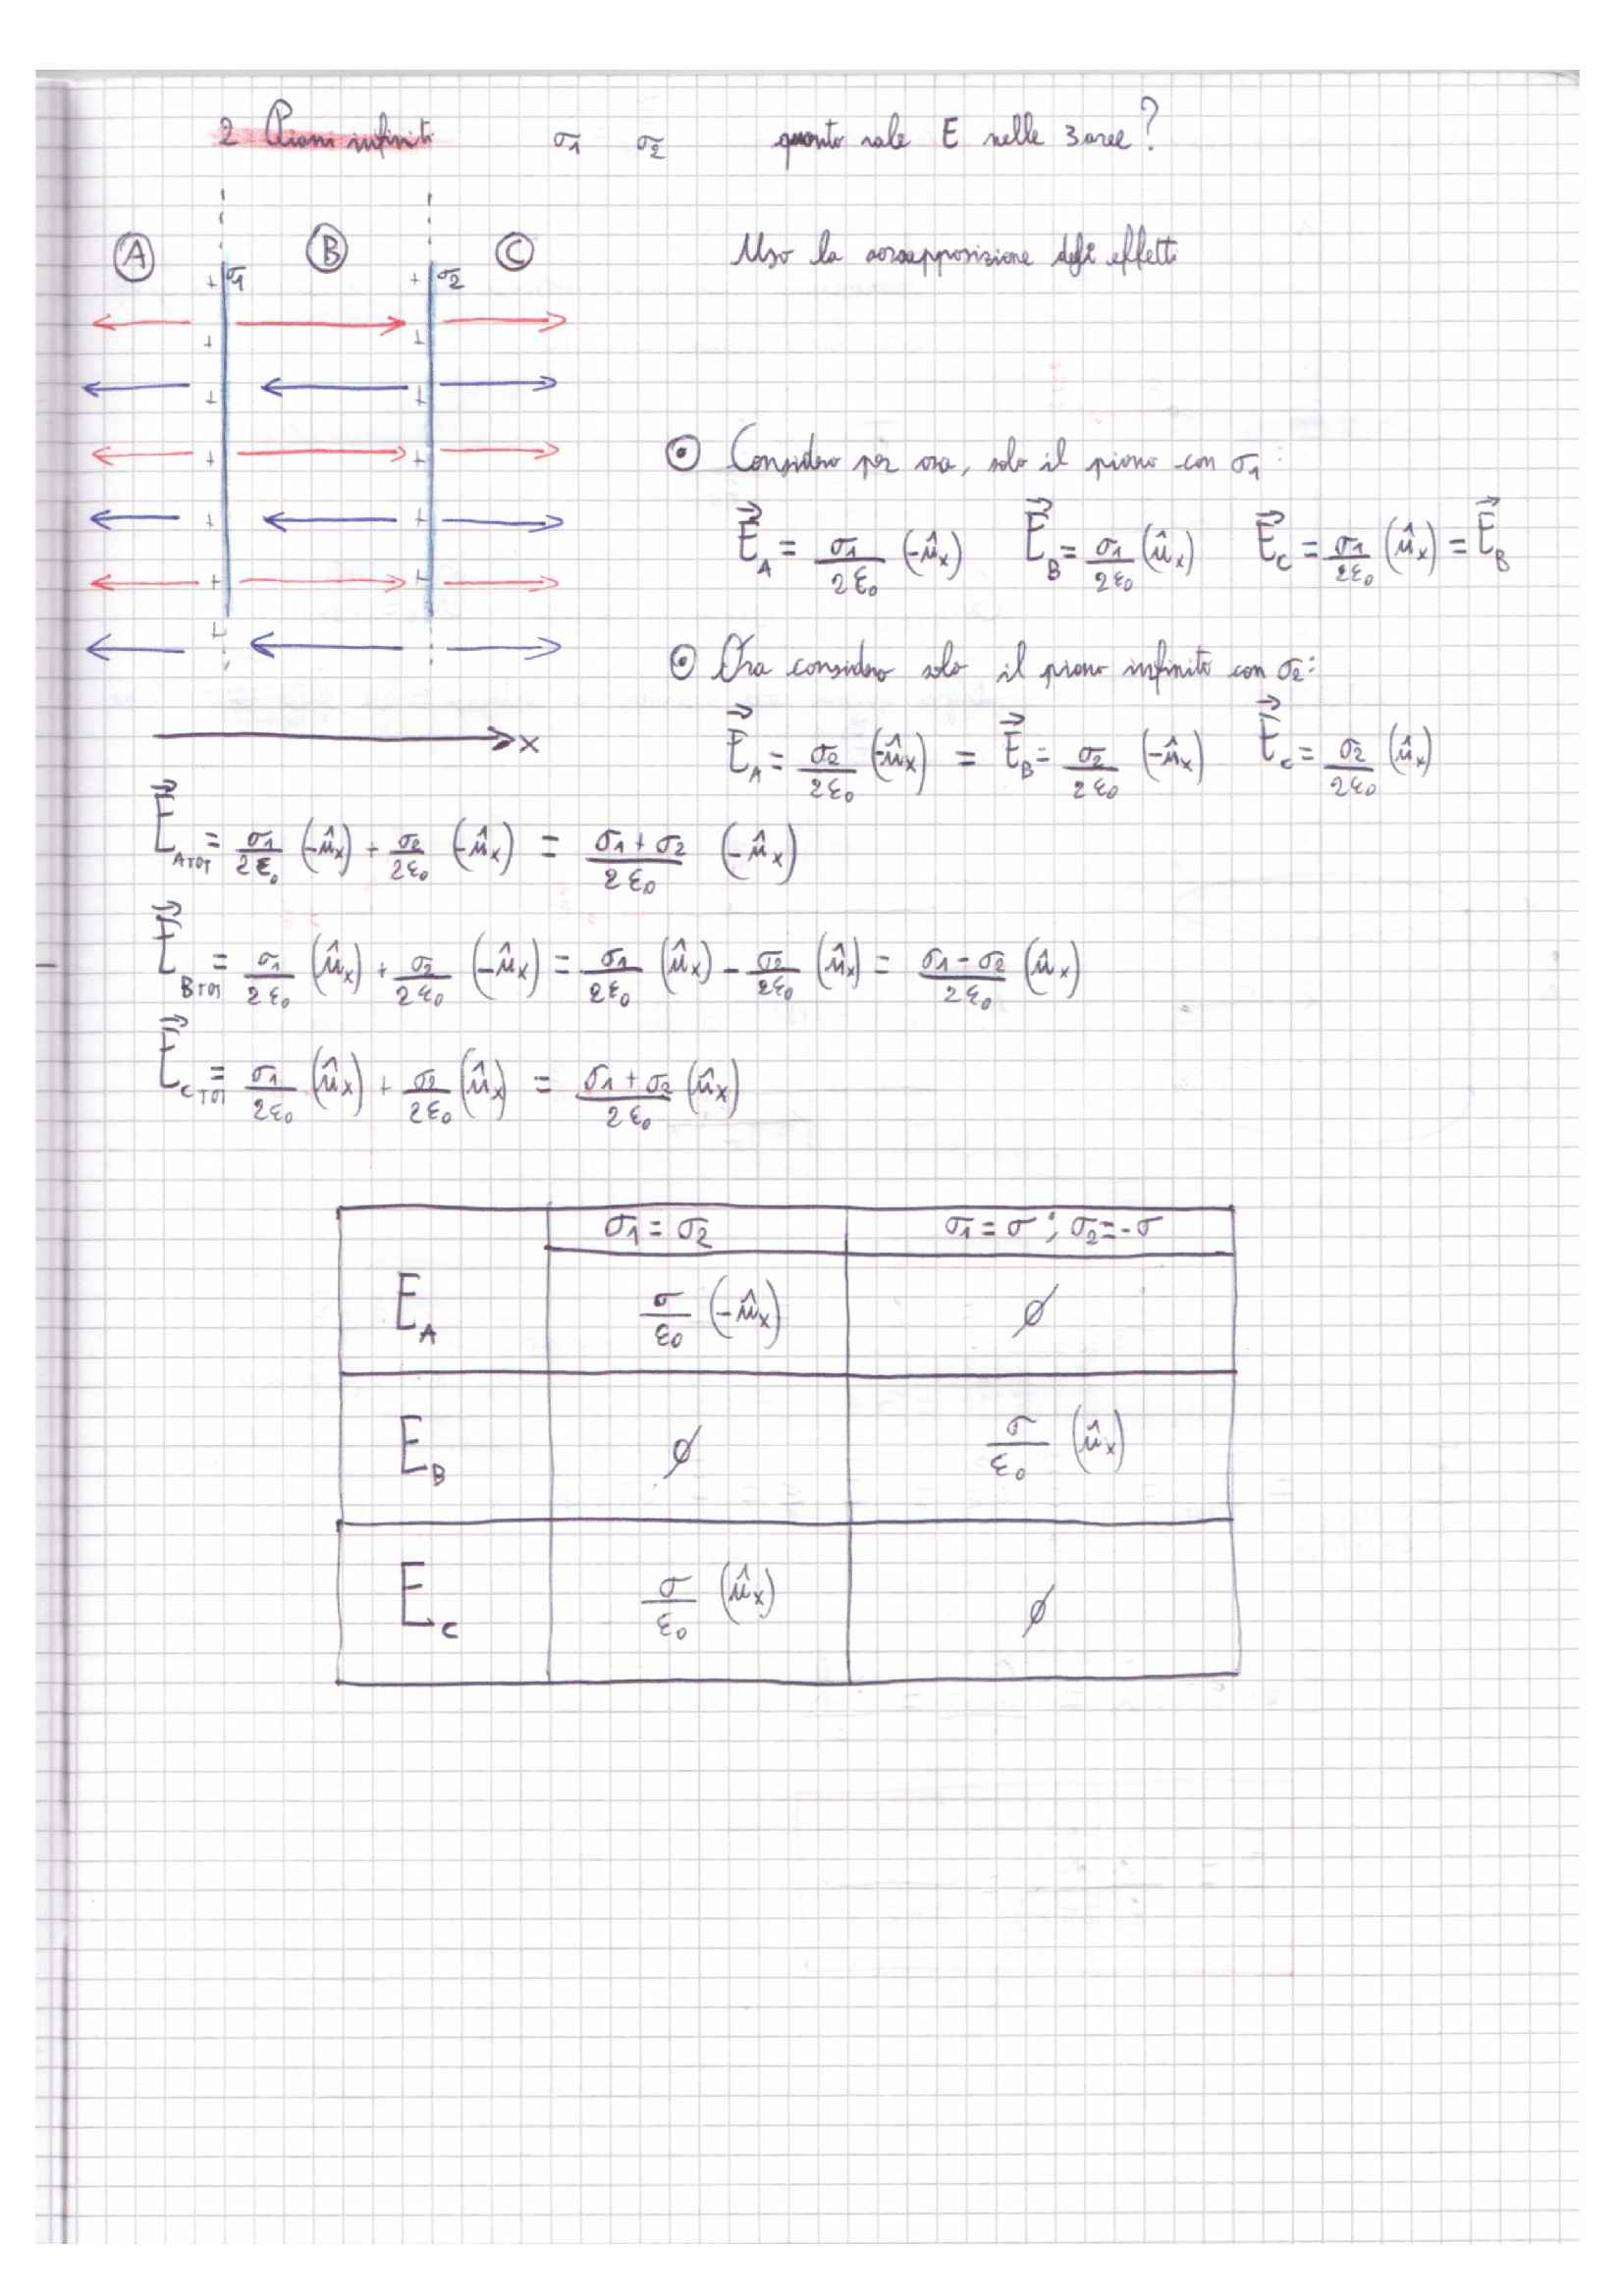 2 Piani infiniti σ1 σ2 quanto vale E nelle 3 aree?
A B C Uso la sovrapposizione degli effetti
+ σ1 + σ2
+ +
+ +
+ +
+ +
+ +
+
⊙ Considero per ora, solo il piano con σ1:
E⃗_A = σ1/2ε0 (-û_x) E⃗_B = σ1/2ε0 (û_x) E⃗_C = σ1/2ε0 (û_x) = E⃗_B
⊙ Ora considero solo il piano infinito con σ2:
E⃗_A = σ2/2ε0 (-û_x) = E⃗_B = σ2/2ε0 (-û_x) E⃗_C = σ2/2ε0 (û_x)
x
E⃗_A TOT = σ1/2ε0 (-û_x) + σ2/2ε0 (-û_x) = σ1 + σ2/2ε0 (-û_x)
E⃗_B TOT = σ1/2ε0 (û_x) + σ2/2ε0 (-û_x) = σ1/2ε0 (û_x) - σ2/2ε0 (û_x) = σ1 - σ2/2ε0 (û_x)
E⃗_C TOT = σ1/2ε0 (û_x) + σ2/2ε0 (û_x) = σ1 + σ2/2ε0 (û_x)
σ1 = σ2 σ1 = σ ; σ2 = -σ
E_A σ/ε0 (-û_x) ∅
E_B ∅ σ/ε0 (û_x)
E_C σ/ε0 (û_x) ∅